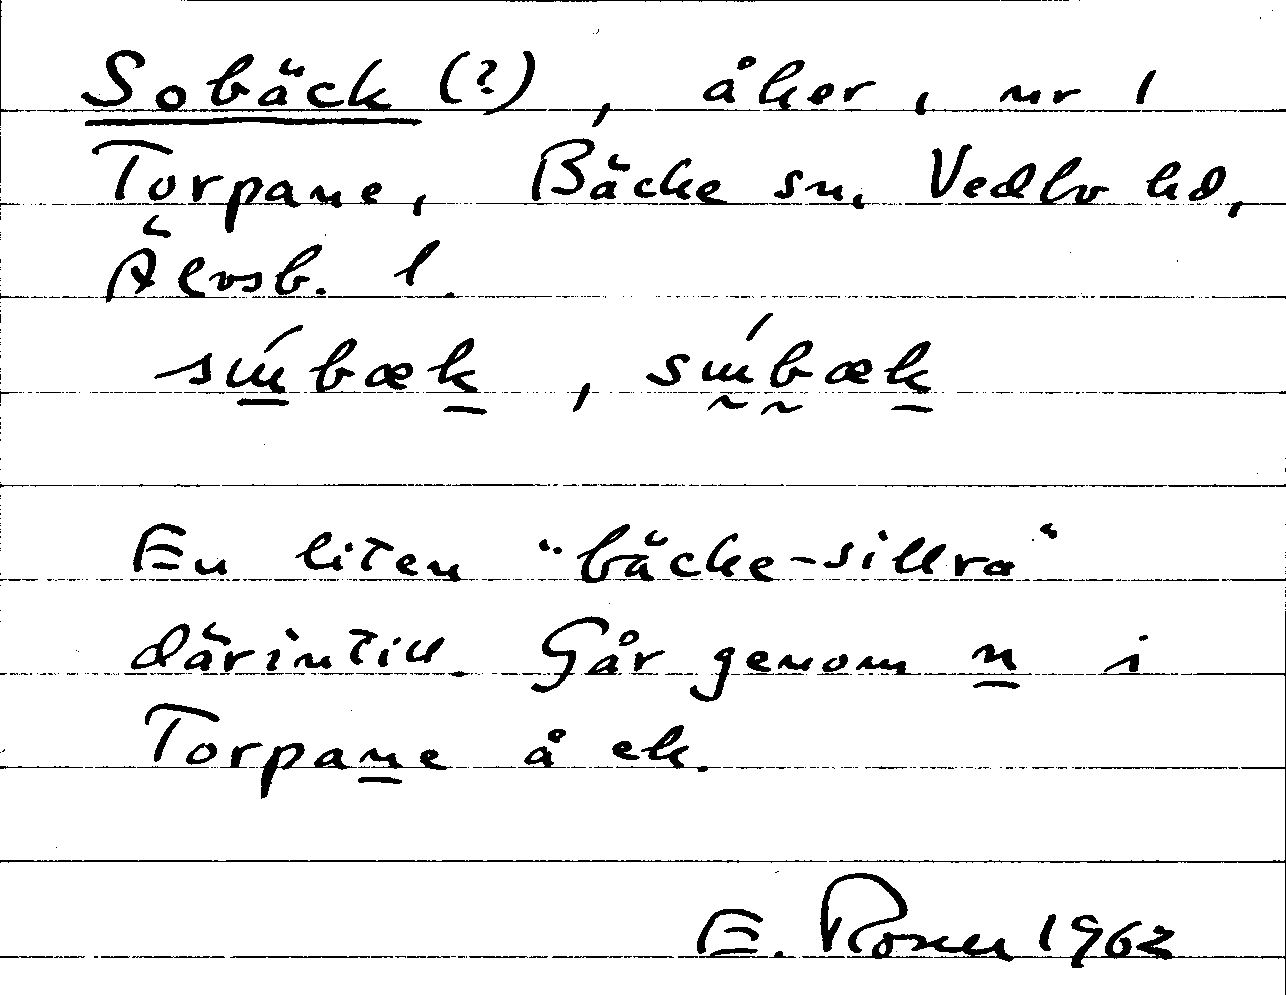 Sobäck (?), åker, nr 1
Torpane, Bäcke sn. Vedbo hd,
Älvsb. l.
En liten "bäcke-sillra"
därintill. Går genom n i
Torpane å ek.
E. Rosell 1962